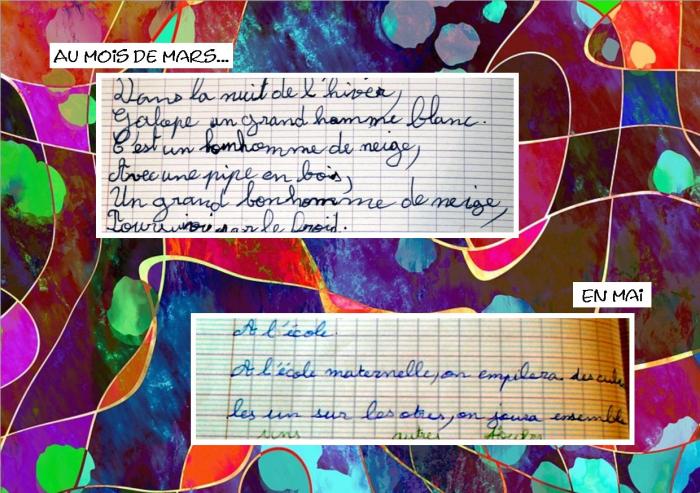 AU MOIS DE MARS...
Dans la nuit de l'hiver,
Galope un grand homme blanc.
C'est un bonhomme de neige,
Avec une pipe en bois,
Un grand bonhomme de neige,
Poursuivi par le froid.
EN MAI
A l'école.
A l'école maternelle, on empilera des cube
les un sur les otres, on joura ensemble
uns autres